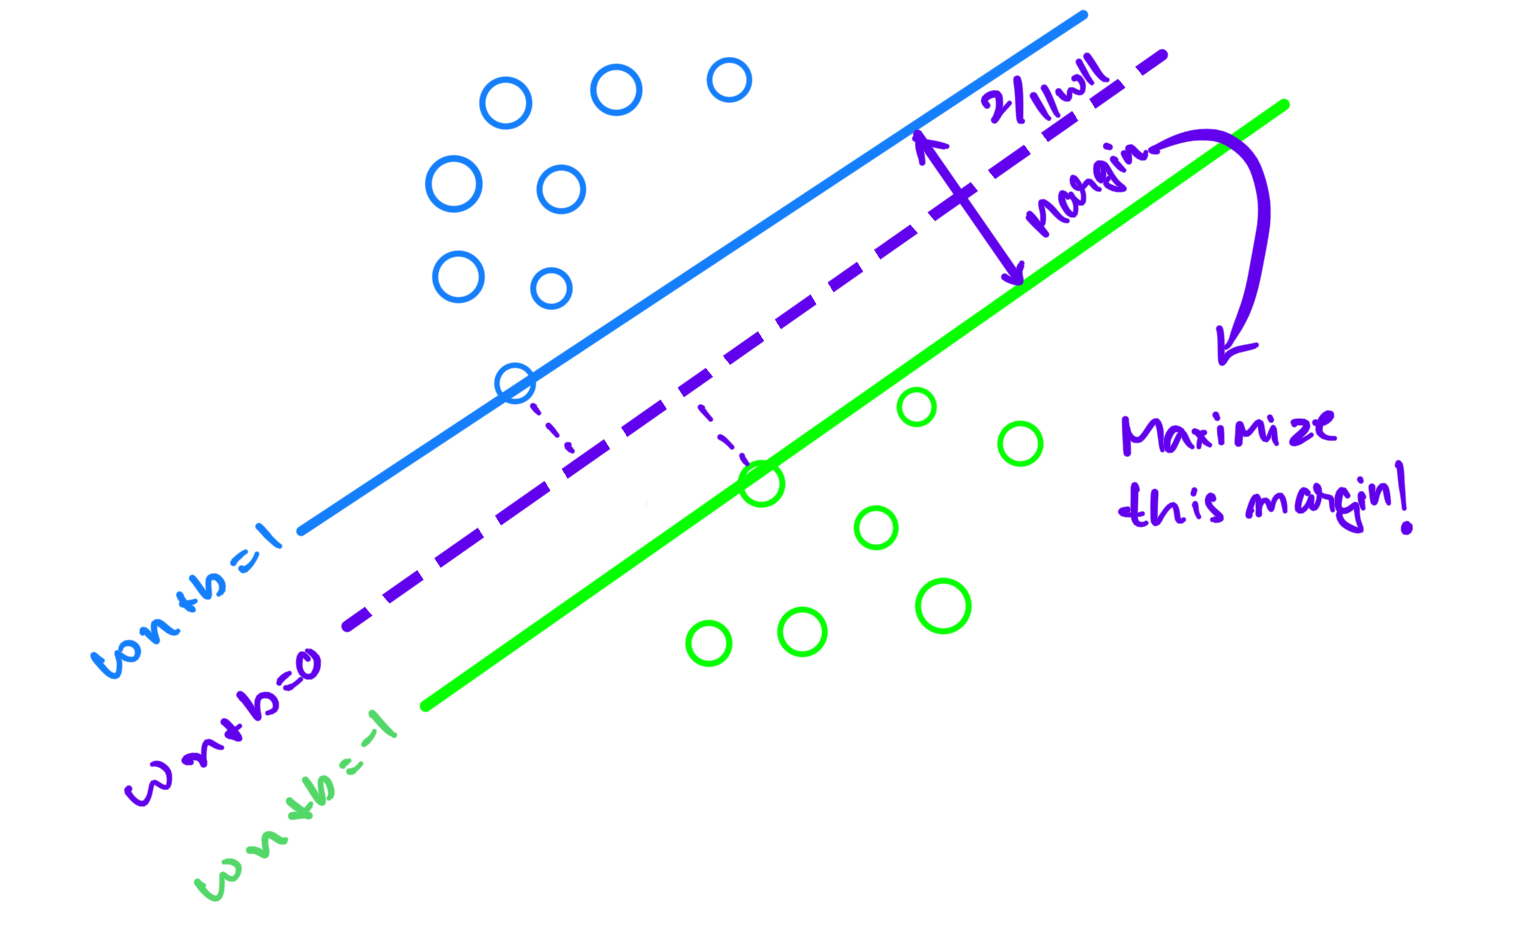 2/||w||
Margin
Maximize
this margin!
wx+b=1
wx+b=0
wx+b=-1